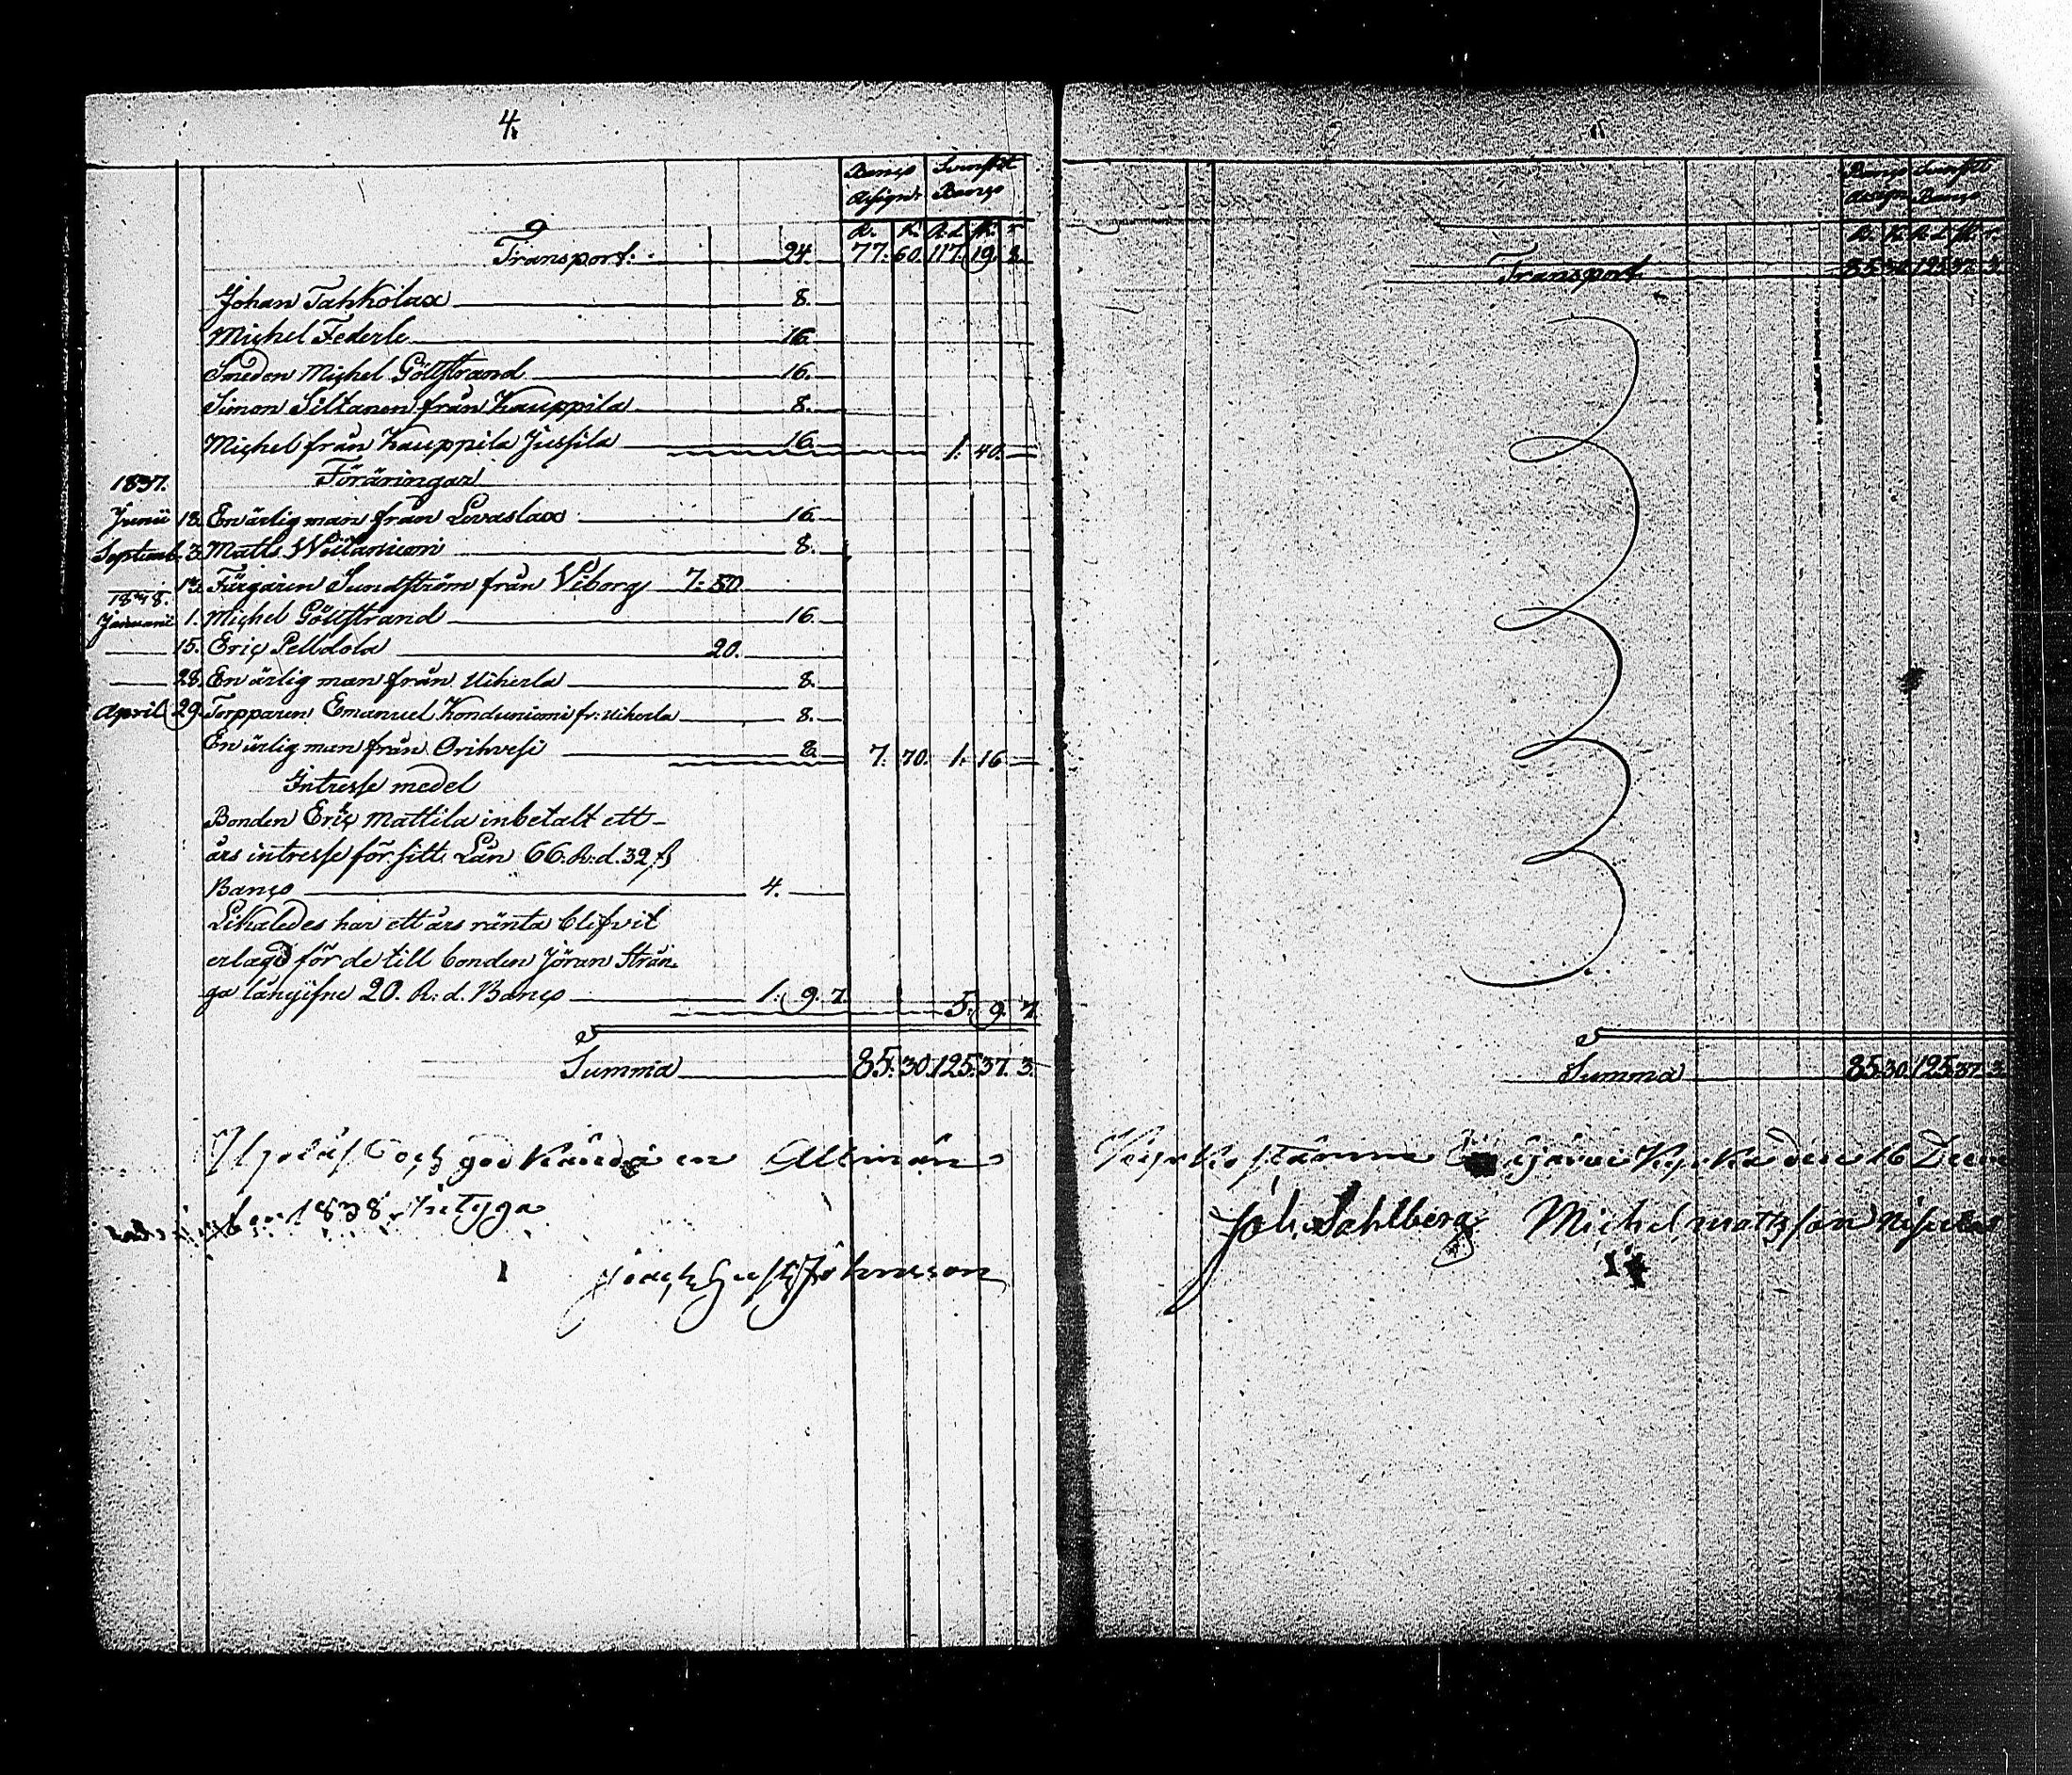 4.
Banco Svenskt
Assign: Banco
R. K. R.d. ß. r.
Transport: 24. 77. 60. 117. 19. 8.
Johan Tahkolax 8.
Michel Federle 16.
Smeden Michel Göllstrand 16.
Simon Siltanen från Kauppila 8.
Michel från Kauppila Jussila 16. 1. 40.
1837. Föräringar
Junii 18. En ärlig man från Lovaslax 16.
Septemb. 3. Matts 8.
Färgaren Sundström från Viborg 7. 50
1838.
Januarii 1. Michel Göllstrand 16.
15. Eric Pelldola 20.
28. En ärlig man från Uiherla 8.
April 29. Torpparen Emanuel fr: Uiherla 8.
En ärlig man från Orihvesi 8. 7. 70. 1. 16
Intresse medel
Bonden Eric Mattila inbetalt ett
års intresse för sitt Lån 66. R:d. 32 ß
Banco 4.
Likaledes har ett års ränta blifvit
erlagd för de till bonden Jöran Strån
ga långifne 20. R:d. Banco 1. 9. 7. 5. 9. 7.
Summa 85. 30. 125. 37. 3.
och godkända en Allmän
1838. betyga
Gust. Johnsson
Banco Svenskt
Assign. Banco
R. K. R.d. ß. r.
Transport 85. 30. 125. 37. 3.
Summa 85. 30. 125. 37. 3.
Kyrko stämma i Kyrka den 16 Decem
Joh. Sahlberg Michel mattsson